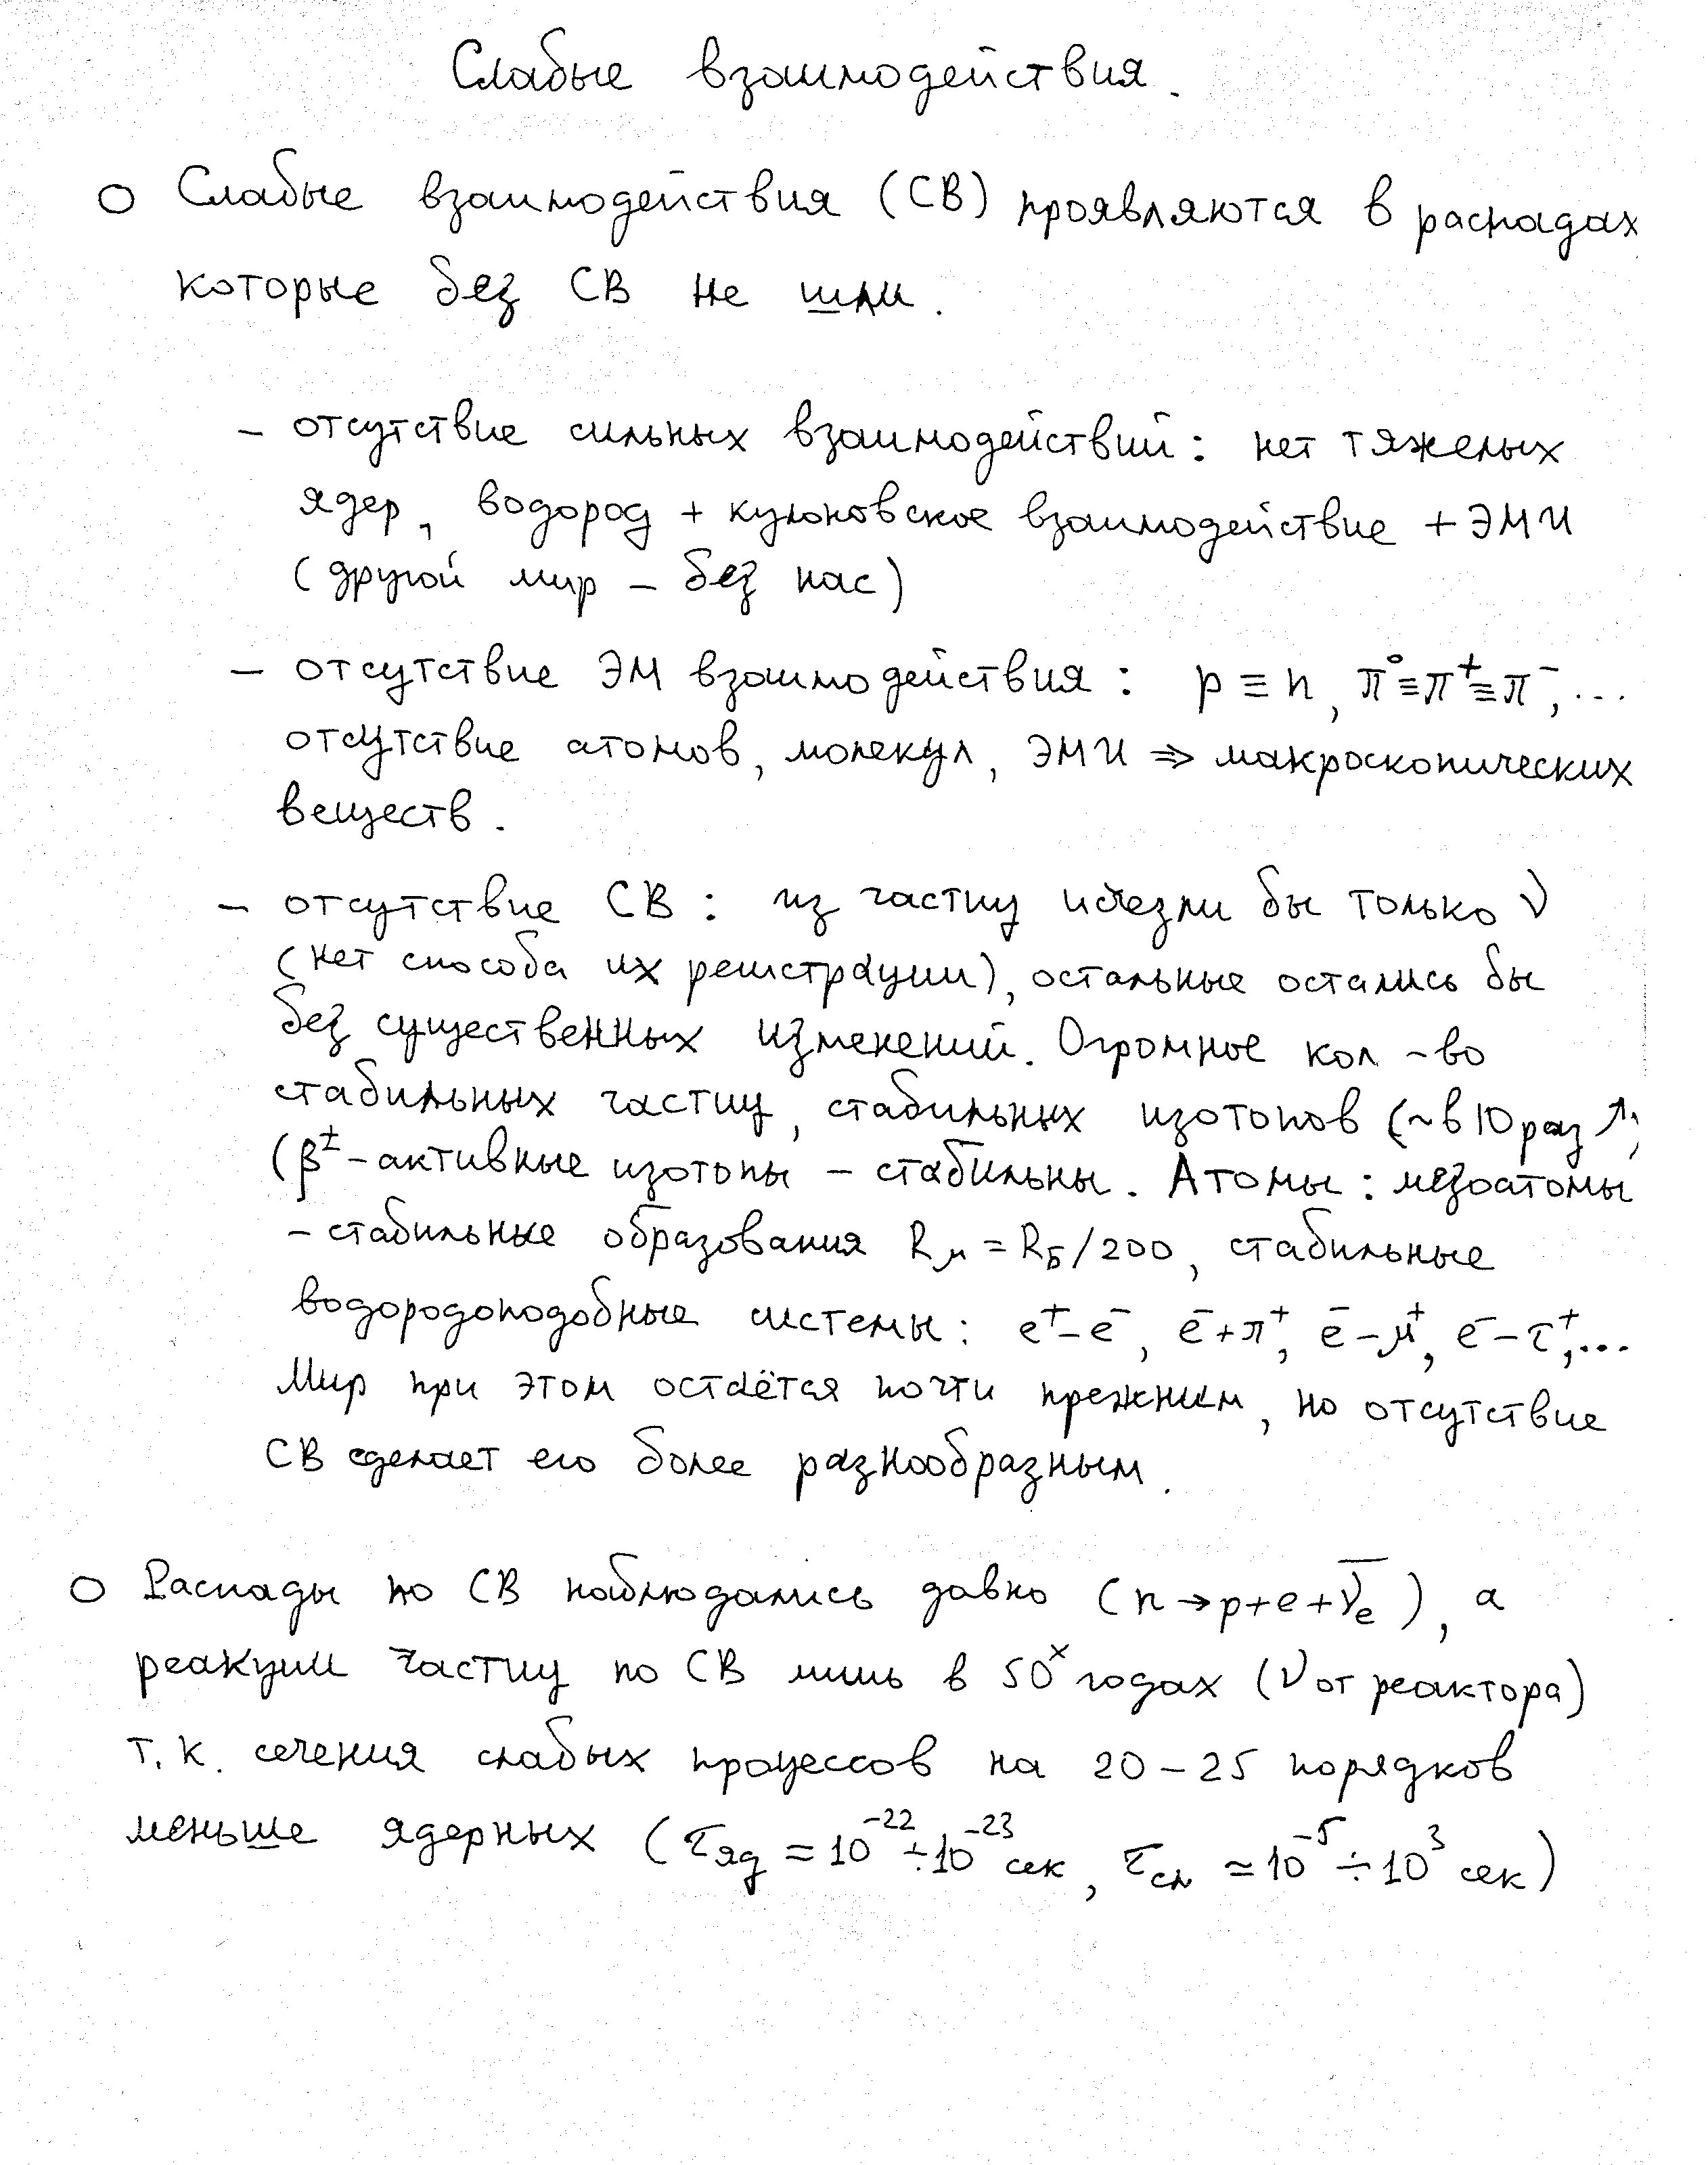 Слабые взаимодействия.
○ Слабые взаимодействия (СВ) проявляются в распадах
которые без СВ не шли.
– отсутствие сильных взаимодействий: нет тяжелых
ядер, водород + кулоновское взаимодействие + ЭМИ
(другой мир – без нас)
– отсутствие ЭМ взаимодействия: p ≡ n, π⁰≡π⁺≡π⁻, ...
отсутствие атомов, молекул, ЭМИ ⇒ макроскопических
веществ.
– отсутствие СВ: из частиц исчезли бы только ν
(нет способа их регистрации), остальные остались бы
без существенных изменений. Огромное кол-во
стабильных частиц, стабильных изотопов (~в 10 раз ↑;
(β±-активные изотопы – стабильны. Атомы: мезоатомы
– стабильные образования Rμ = RБ/200, стабильные
водородоподобные системы: e⁺–e⁻, e⁻+π⁺, e⁻–μ⁺, e⁻–τ⁺,...
Мир при этом остаётся почти прежним, но отсутствие
СВ сделает его более разнообразным.
○ Распады по СВ наблюдались давно (n→p+e+ν̅ₑ), а
реакции частиц по СВ лишь в 50ˣ годах (ν от реактора)
т.к. сечения слабых процессов на 20–25 порядков
меньше ядерных (τяд ≃ 10⁻²² ÷ 10⁻²³ сек, τсл ≃ 10⁻⁵ ÷ 10³ сек)